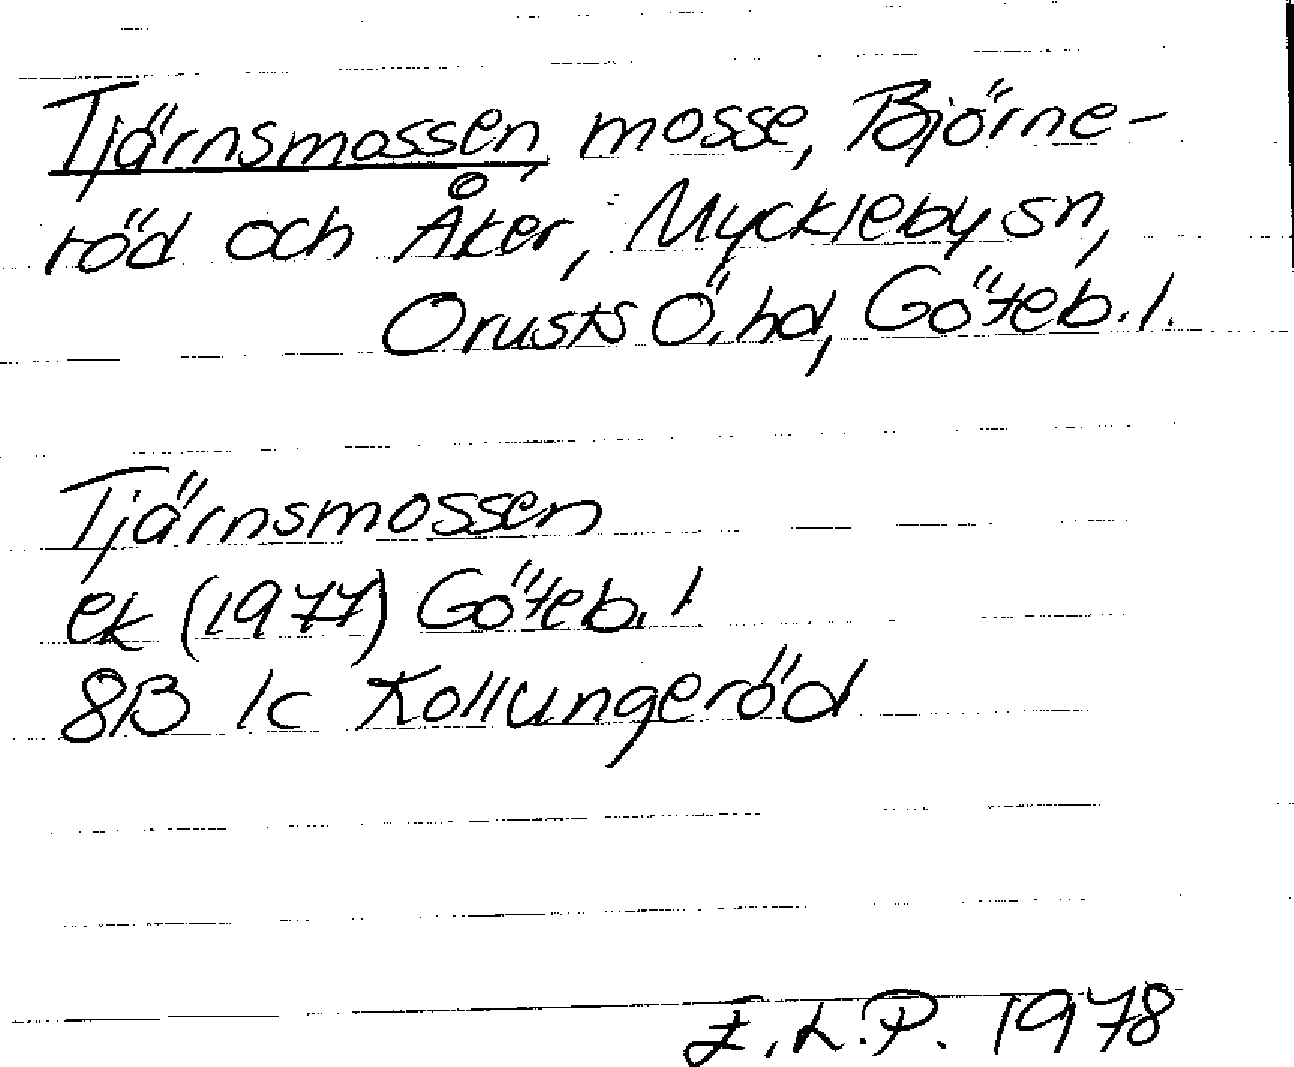 Tjärnsmossen, mosse, Björne-
röd och Åker, Myckleby sn,
Orusts Ö. hd, Göteb. l.
Tjärnsmossen
ek (1977) Göteb. l
8B 1c Kollungeröd
E.L.P. 1978